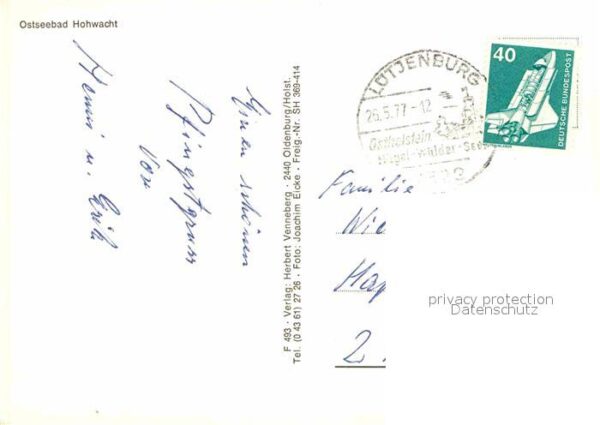 Ostseebad Hohwacht
Einen schönen
Pfingstgruss
von
Henni u. Erik
F 493 · Verlag: Herbert Venneberg · 2440 Oldenburg/Holst.
Tel. (0 43 61) 27 26 · Foto: Joachim Eicke · Freig.-Nr. SH 369-414
LÜTJENBURG
26.5.77-12
Ostholstein
Hügel-Wälder-Seen
40
DEUTSCHE BUNDESPOST
Familie
Wie
Hap
2.
privacy protection
Datenschutz